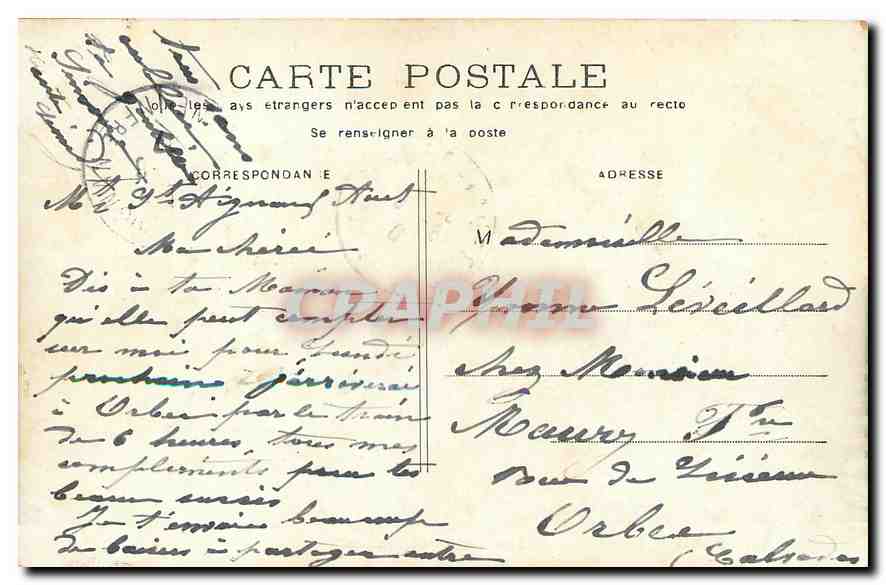 CARTE POSTALE
Tous les pays étrangers n'acceptent pas la correspondance au recto
Se renseigner à la poste
CORRESPONDANCE
Mt St Aignan Aout
Ma chérie
Dis à ta Maman
qu'elle peut compter
sur moi pour Lundi
prochaine j'arriverai
à Orbec par le train
de 6 heures tous mes
compliments pour tes
beaux succès
Je t'envoie beaucoup
de baisers à partager entre
tous
ADRESSE
Mademoiselle
Yvonne Léveillard
chez Monsieur
Maury
Rue de Lisieux
Orbec
(Calvados
CPAPHIL